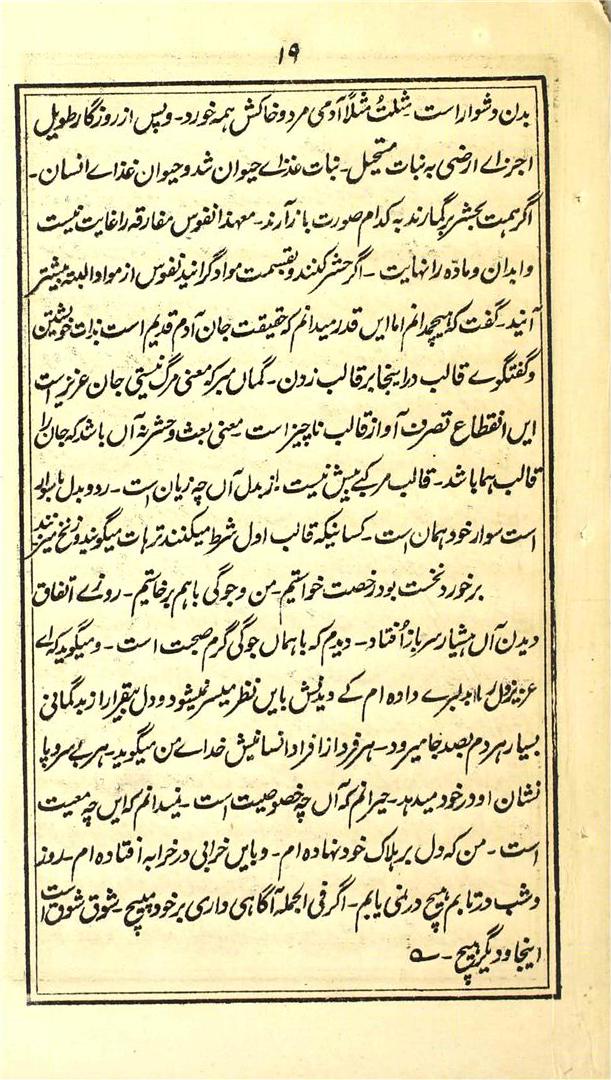 ۱۹
بدن دشوار است شِلتُ شلاً آدمی مرد و خاکش همه خورد۔ و پس از روزگار طویل
اجزاے ارضی بہ نبات مستحیل۔ نبات غذاے حیوان شد و حیوان غذاے انسان۔
اگر ہمت بحشر برگمارند بہ کدام صورت باز آرند۔ معہذا نفوس مفارقہ را غایت نیست
و ابدان و مادّہ را نہایت۔ اگر حشر کنند و بقسمت مواد گرانید نفوس از مواد البتہ بیشتر
آیند۔ گفت کہ ہیچمدانم اما ایں قدر میدانم کہ حقیقت جان آدم قدیم است بذات خویشتن
و گفتگوے قالب در اینجا بر قالب زدن۔ گماں مبر کہ معنی مرگ نیستی جان عزیز است
ایں انقطاع تصرف آواز قالب ناچیز است معنی بعث و حشر نہ آں باشد کہ جان را
قالب ہما باشد۔ قالب مرکبے بیش نیست از بدل آں چہ زیان است۔ رد و بدل با سوار
است سوار خود ہمان است۔ کسانیکہ قالب اول شرط میکنند ترہات میگویند و زنخ میزنند
برخورد نخست بود رخصت خواستیم۔ من و جوگی باہم برخاستیم۔ روزے اتفاق
دیدن آں ہشیار سرباز اُفتاد۔ دیدم کہ با ہماں جوگی گرم صحبت است۔ و میگوید کہ اے
عزیز دل را بدلبرے دادہ ام کے دیدنش بایں نظر میسر نمیشود و دل بیقرار از بدگمانی
بسیار ہر دم بصد جا میرود۔ ہر فرد از افراد انسانیش خداے من میگوید۔ ہر بے سر و پا
نشان او در خود میدہد۔ حیرانم کہ آں چہ خصوصیت است۔ نمیدانم کہ ایں چہ معیت
است۔ من کہ دل بر ہلاک خود نہادہ ام۔ و بایں خرابی در خرابہ افتادہ ام۔ روز
و شب در تابم ہیچ در نمی یابم۔ اگر فی الجملہ آگاہی واری بر خود مپیچ۔ شوق شوق است
اینجا و دیگر ہیچ۔